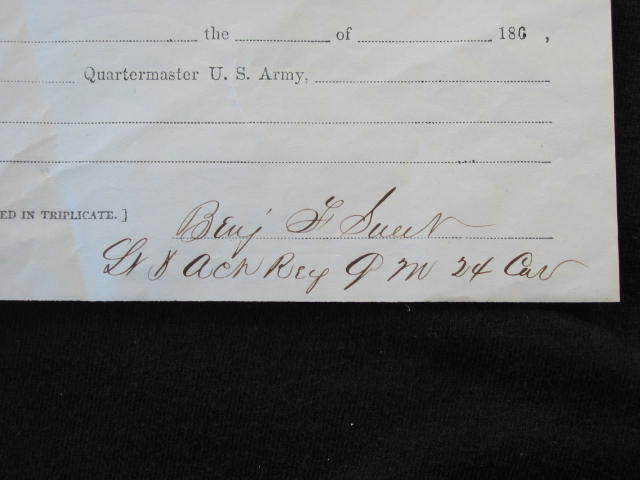 the of 186 ,
Quartermaster U. S. Army,
ED IN TRIPLICATE. ]
Benj F Sweet
Lt & Actn Reg Q M 24 Cav